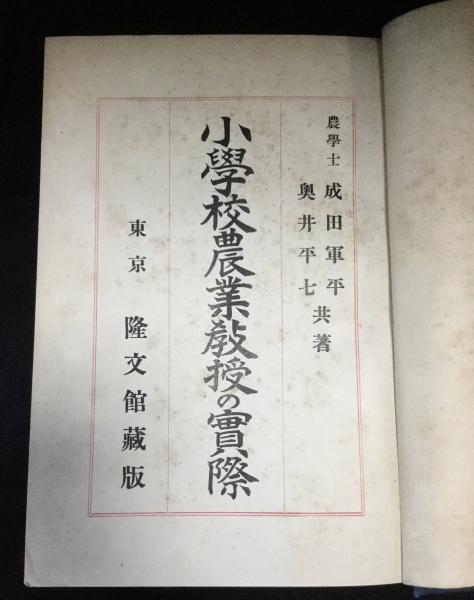 農學士 成田軍平
奥井平七 共著
小學校農業敎授の實際
東京 隆文館藏版